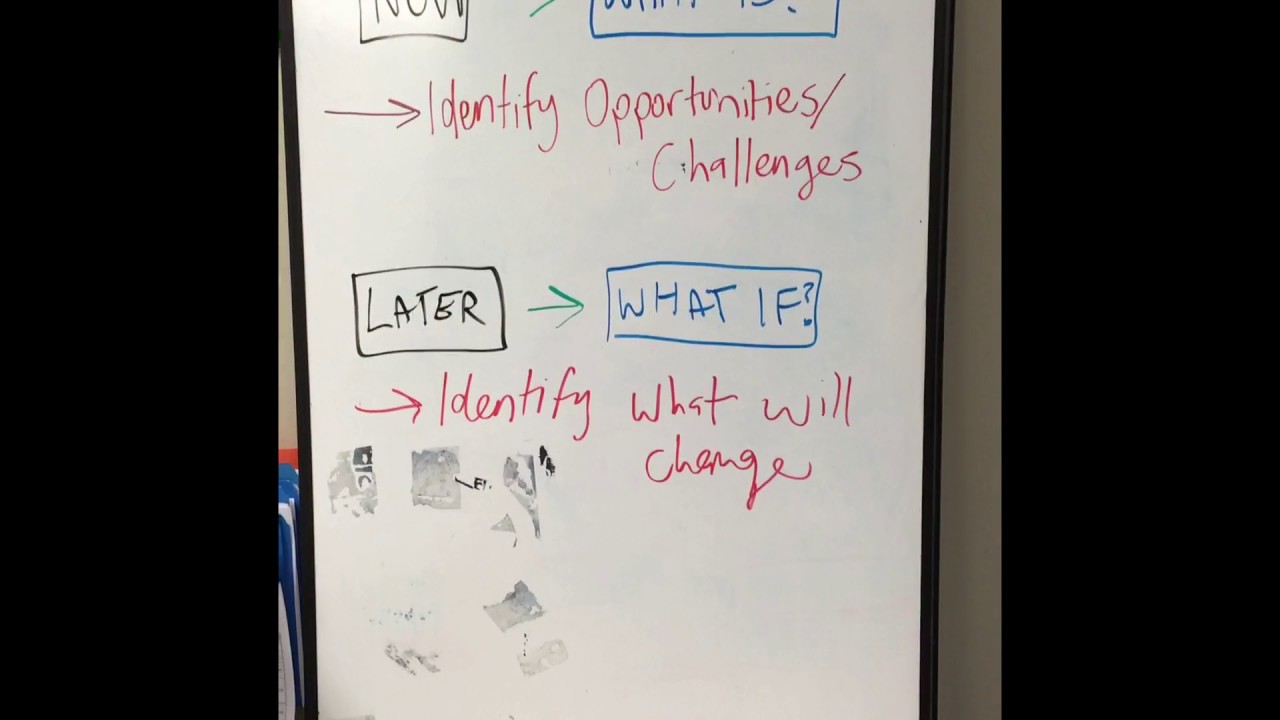 NOW → WHAT IS?
→ Identify Opportunities/
Challenges
LATER → WHAT IF?
→ Identify what will
change